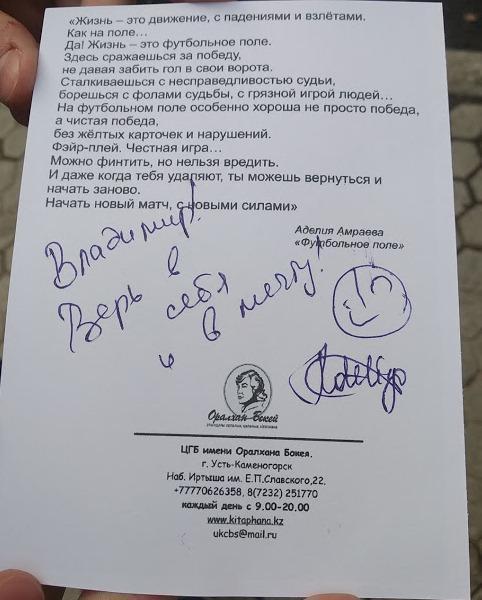 «Жизнь – это движение, с падениями и взлётами.
Как на поле…
Да! Жизнь – это футбольное поле.
Здесь сражаешься за победу,
не давая забить гол в свои ворота.
Сталкиваешься с несправедливостью судьи,
борешься с фолами судьбы, с грязной игрой людей…
На футбольном поле особенно хороша не просто победа,
а чистая победа,
без жёлтых карточек и нарушений.
Фэйр-плей. Честная игра…
Можно финтить, но нельзя вредить.
И даже когда тебя удаляют, ты можешь вернуться и
начать заново.
Начать новый матч, с новыми силами»
Аделия Амраева
«Футбольное поле»
Владимир!
Верь в
себя
и в мечту!
Adeliya
Оралхан Бокей
ЦГБ имени Оралхана Бокея.
г. Усть-Каменогорск
Наб. Иртыша им. Е.П.Славского,22.
+77770626358, 8(7232) 251770
каждый день с 9.00-20.00
www.kitaphana.kz
ukcbs@mail.ru